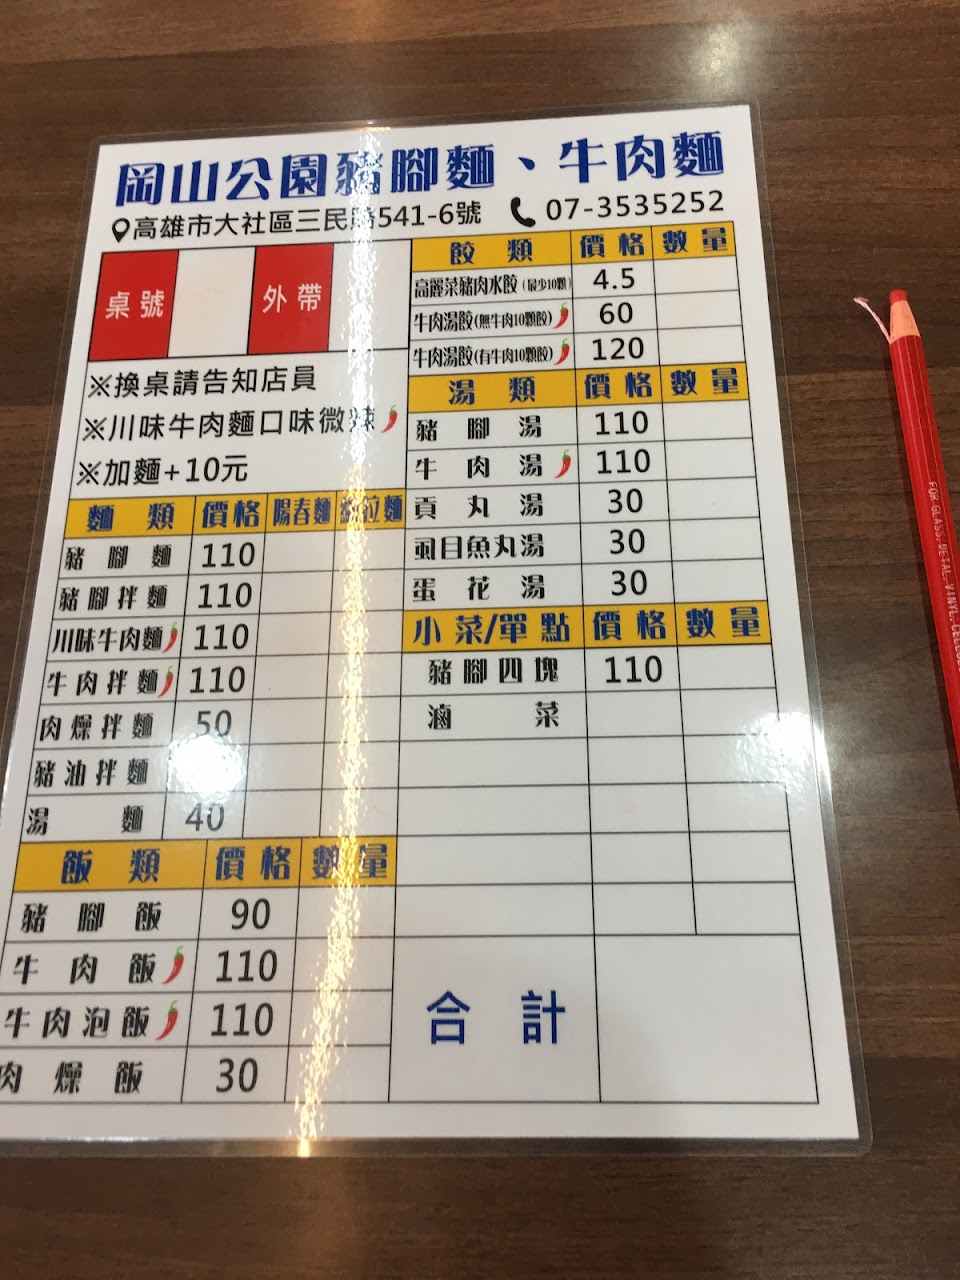 岡山公園豬腳麵、牛肉麵
高雄市大社區三民路541-6號 07-3535252
桌號 外帶
※換桌請告知店員
※川味牛肉麵口味微辣
※加麵+10元
麵類 價格 陽春麵 拉麵
豬腳麵 110
豬腳拌麵 110
川味牛肉麵 110
牛肉拌麵 110
肉燥拌麵 50
豬油拌麵
湯麵 40
飯類 價格 數量
豬腳飯 90
牛肉飯 110
牛肉泡飯 110
肉燥飯 30
餃類 價格 數量
高麗菜豬肉水餃(最少10顆) 4.5
牛肉湯餃(無牛肉10顆餃) 60
牛肉湯餃(有牛肉10顆餃) 120
湯類 價格 數量
豬腳湯 110
牛肉湯 110
貢丸湯 30
虱目魚丸湯 30
蛋花湯 30
小菜/單點 價格 數量
豬腳四塊 110
滷菜
合計